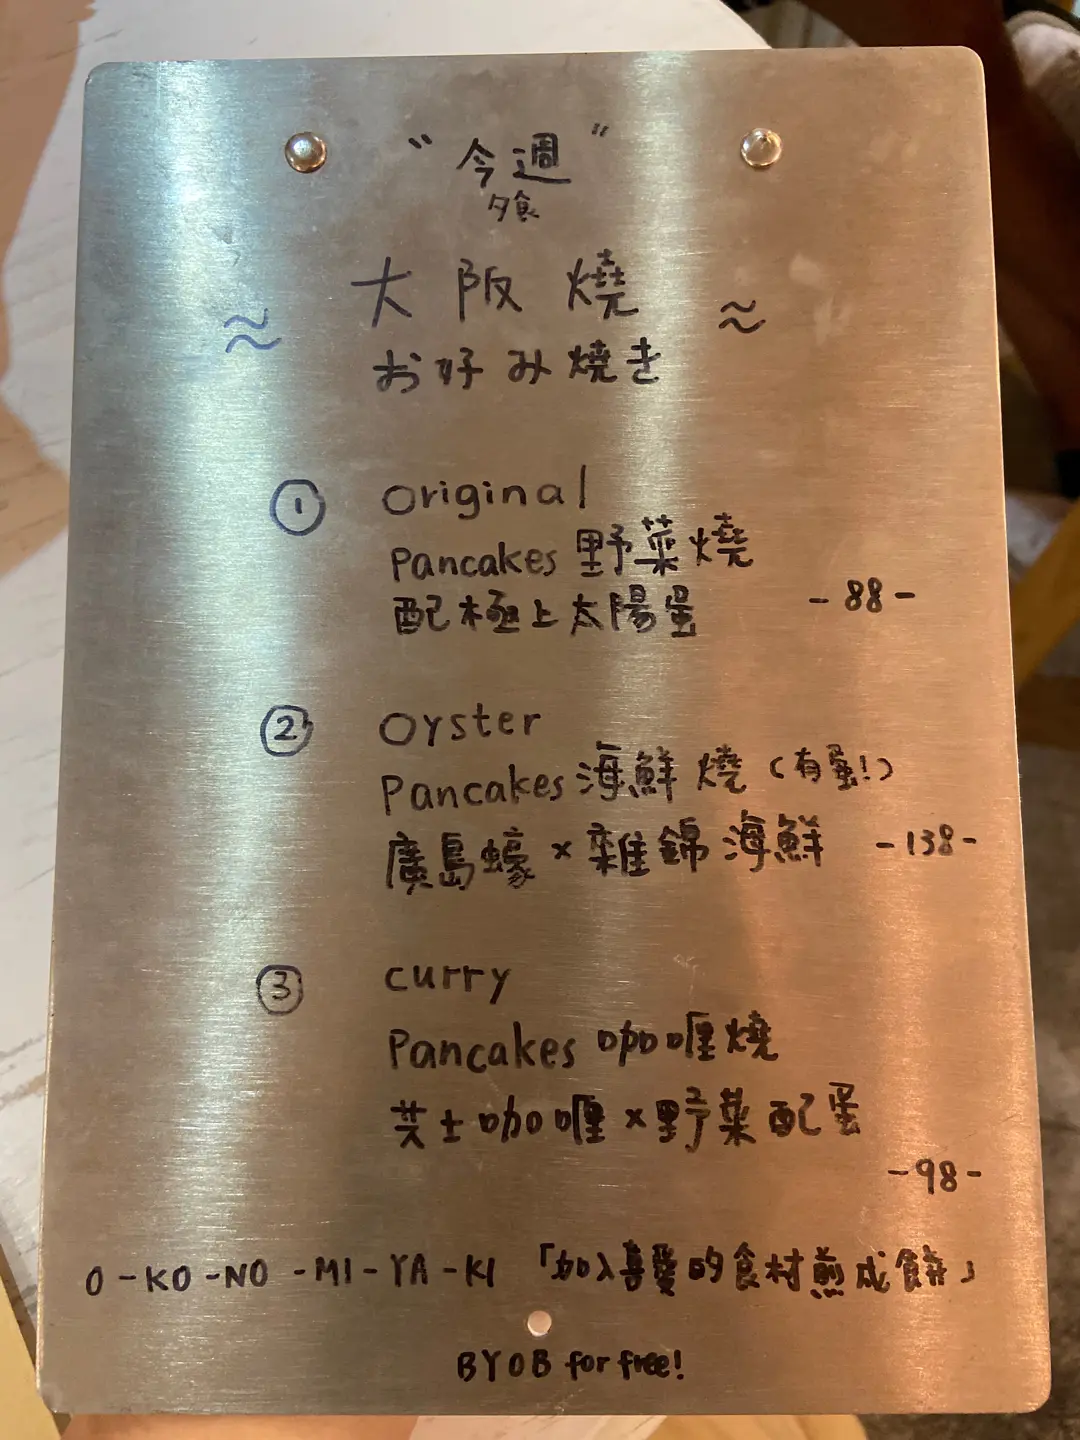 “今週”
夕食
≈ 大阪燒 ≈
お好み焼き
① original
Pancakes 野菜燒
配極上太陽蛋 -88-
② oyster
Pancakes 海鮮燒 (有蛋!)
廣島蠔 × 雜錦海鮮 -138-
③ curry
Pancakes 咖喱燒
芝士咖喱 × 野菜配蛋
-98-
O-KO-NO-MI-YA-KI 「加入喜愛的食材煎成餅」
BYOB for free!